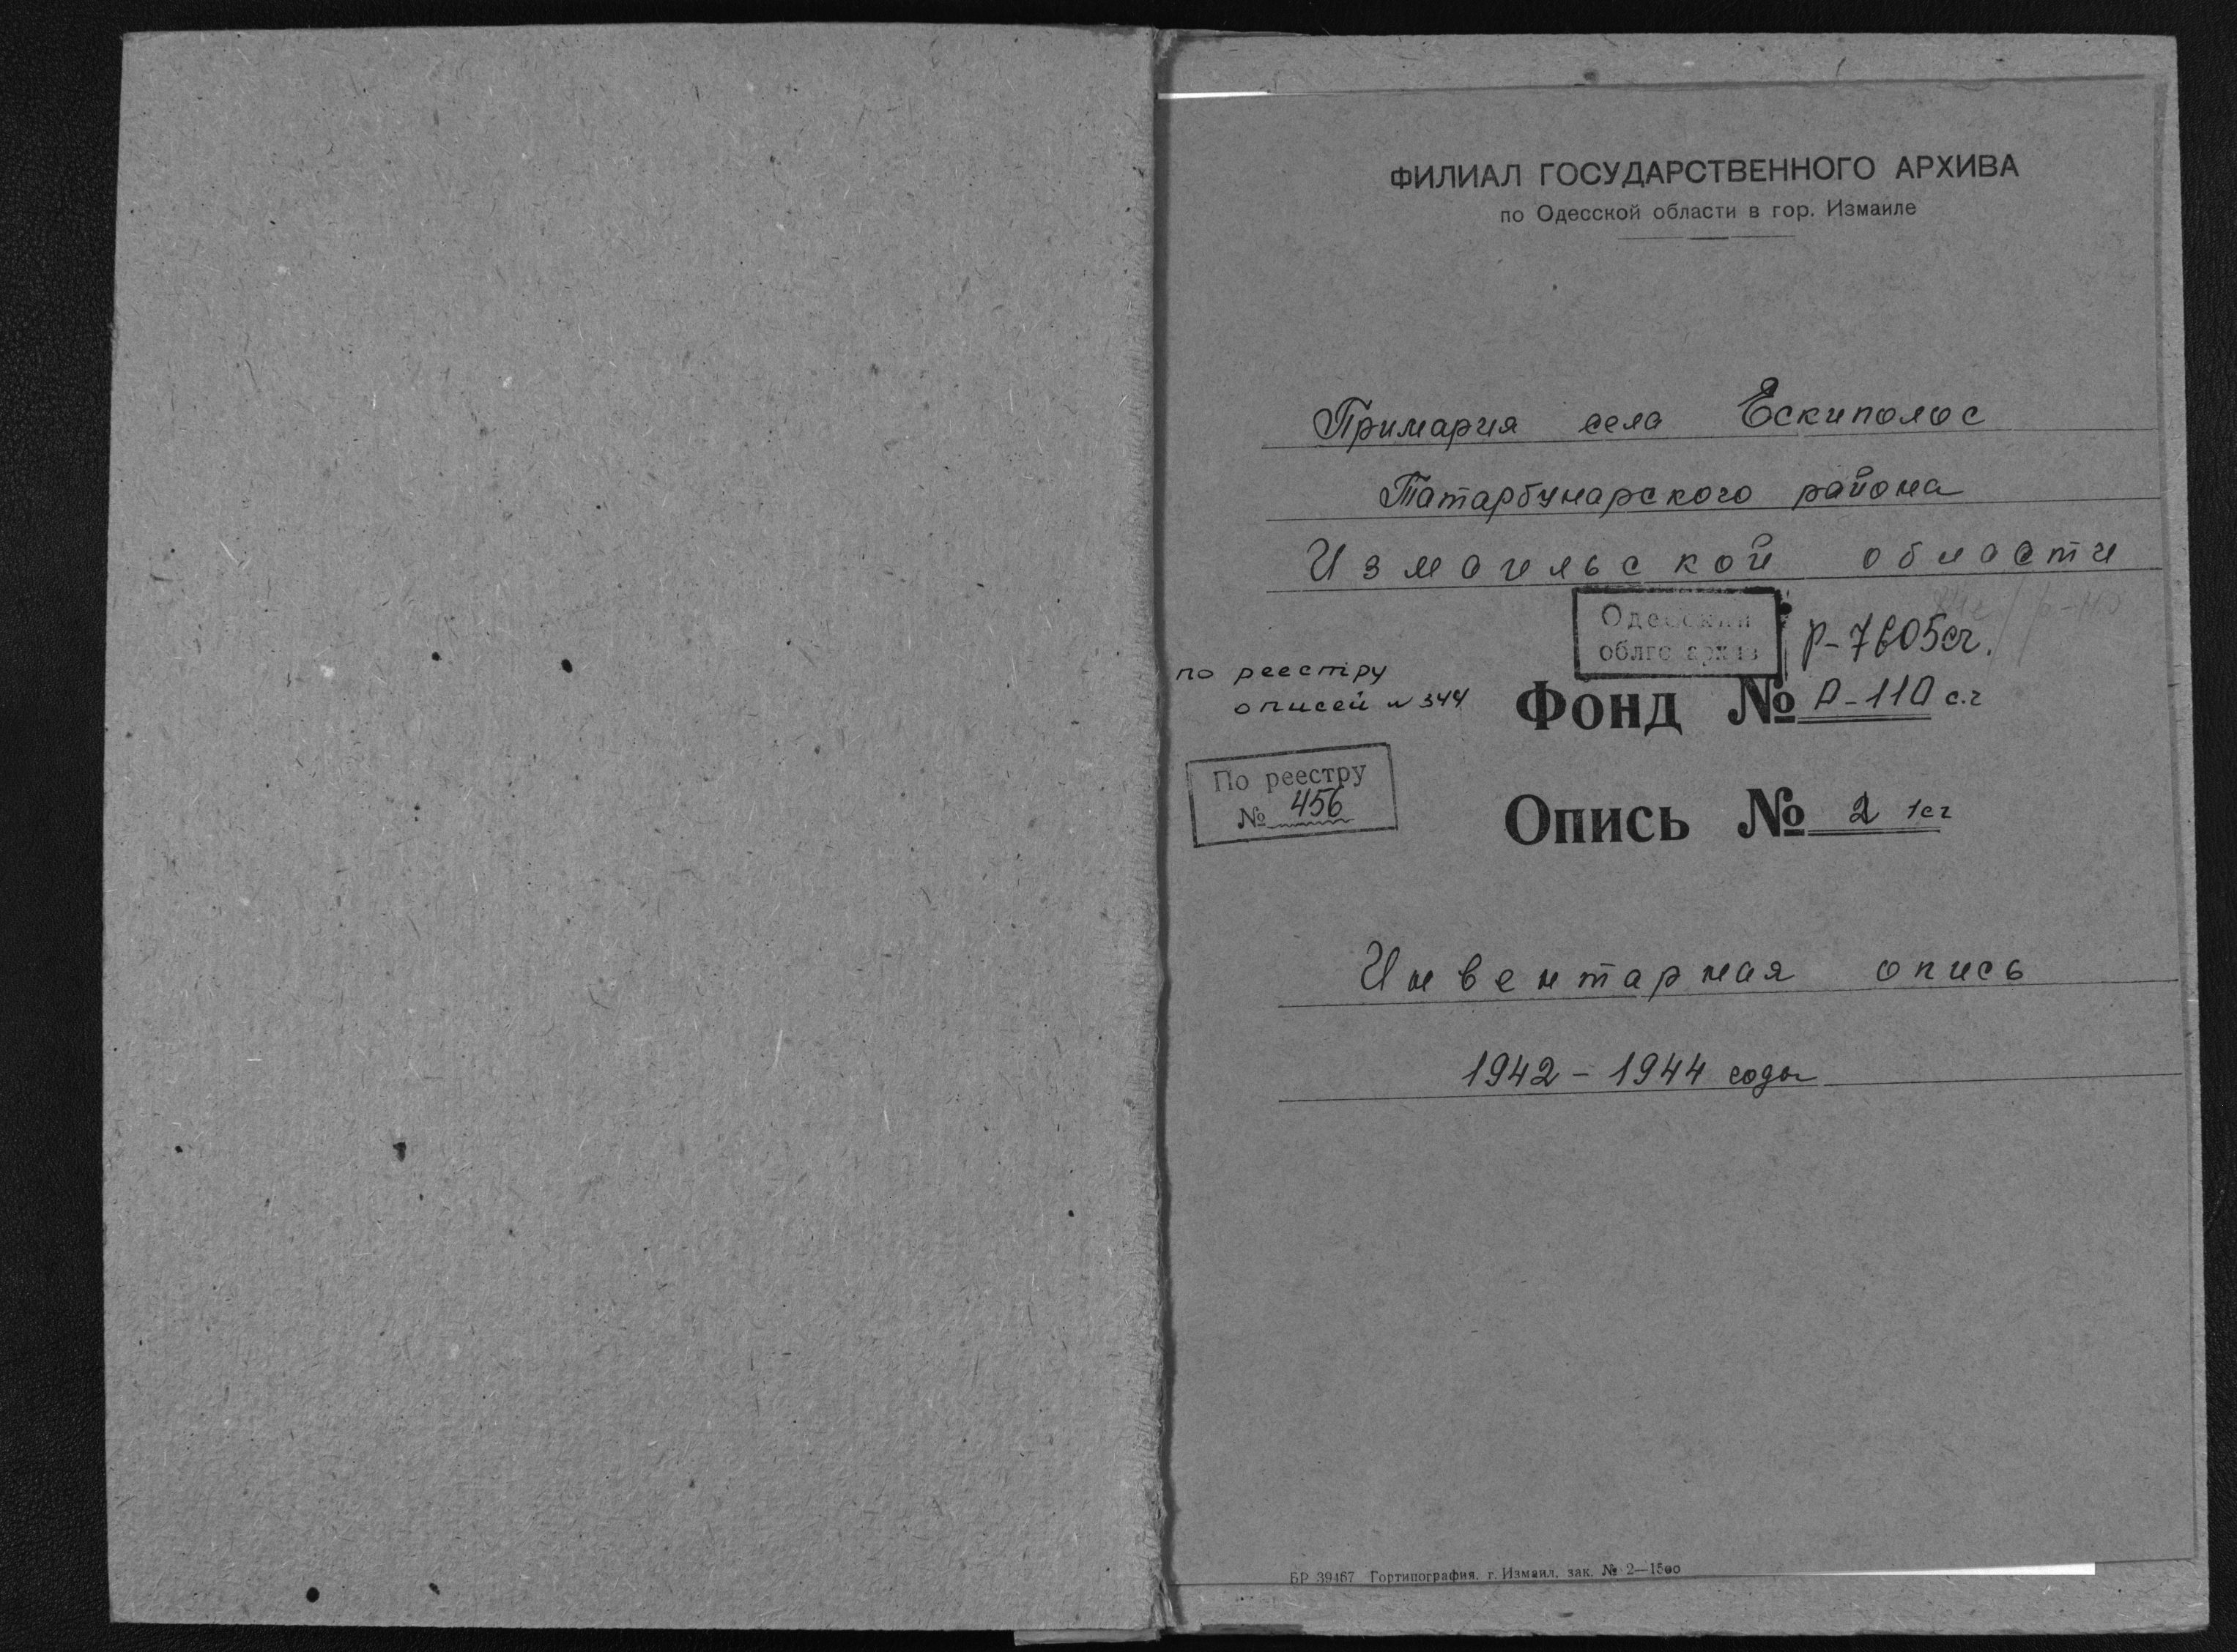 ФИЛИАЛ ГОСУДАРСТВЕННОГО АРХИВА
по Одесской области в гор. Измаиле
Примария села Ескиполос
Татарбунарского района
Измаильской области
Одесский
облгосархив
Р-7605сг.
по реестру
описей №344
Фонд № Р-110 с.г
По реестру
№ 456
Опись № 2 1сг
Инвентарная опись
1942-1944 годы
БР 39467 Гортипография, г. Измаил, зак. № 2—1500